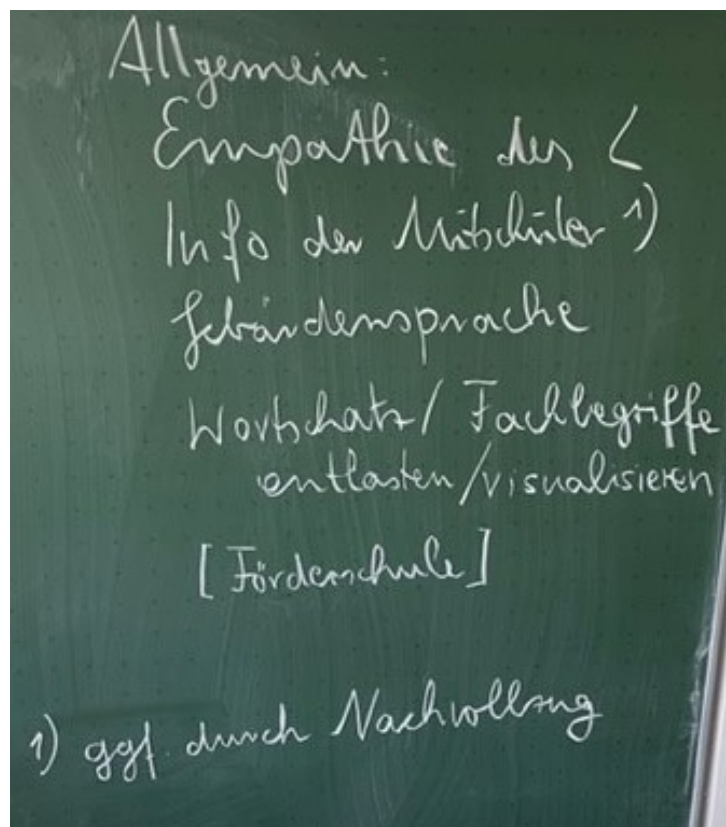 Allgemein:
Empathie des <
Info der Mitschüler 1)
Gebärdensprache
Wortschatz/ Fachbegriffe
entlasten/visualisieren
[Förderschule]
1) ggf. durch Nachvollzug